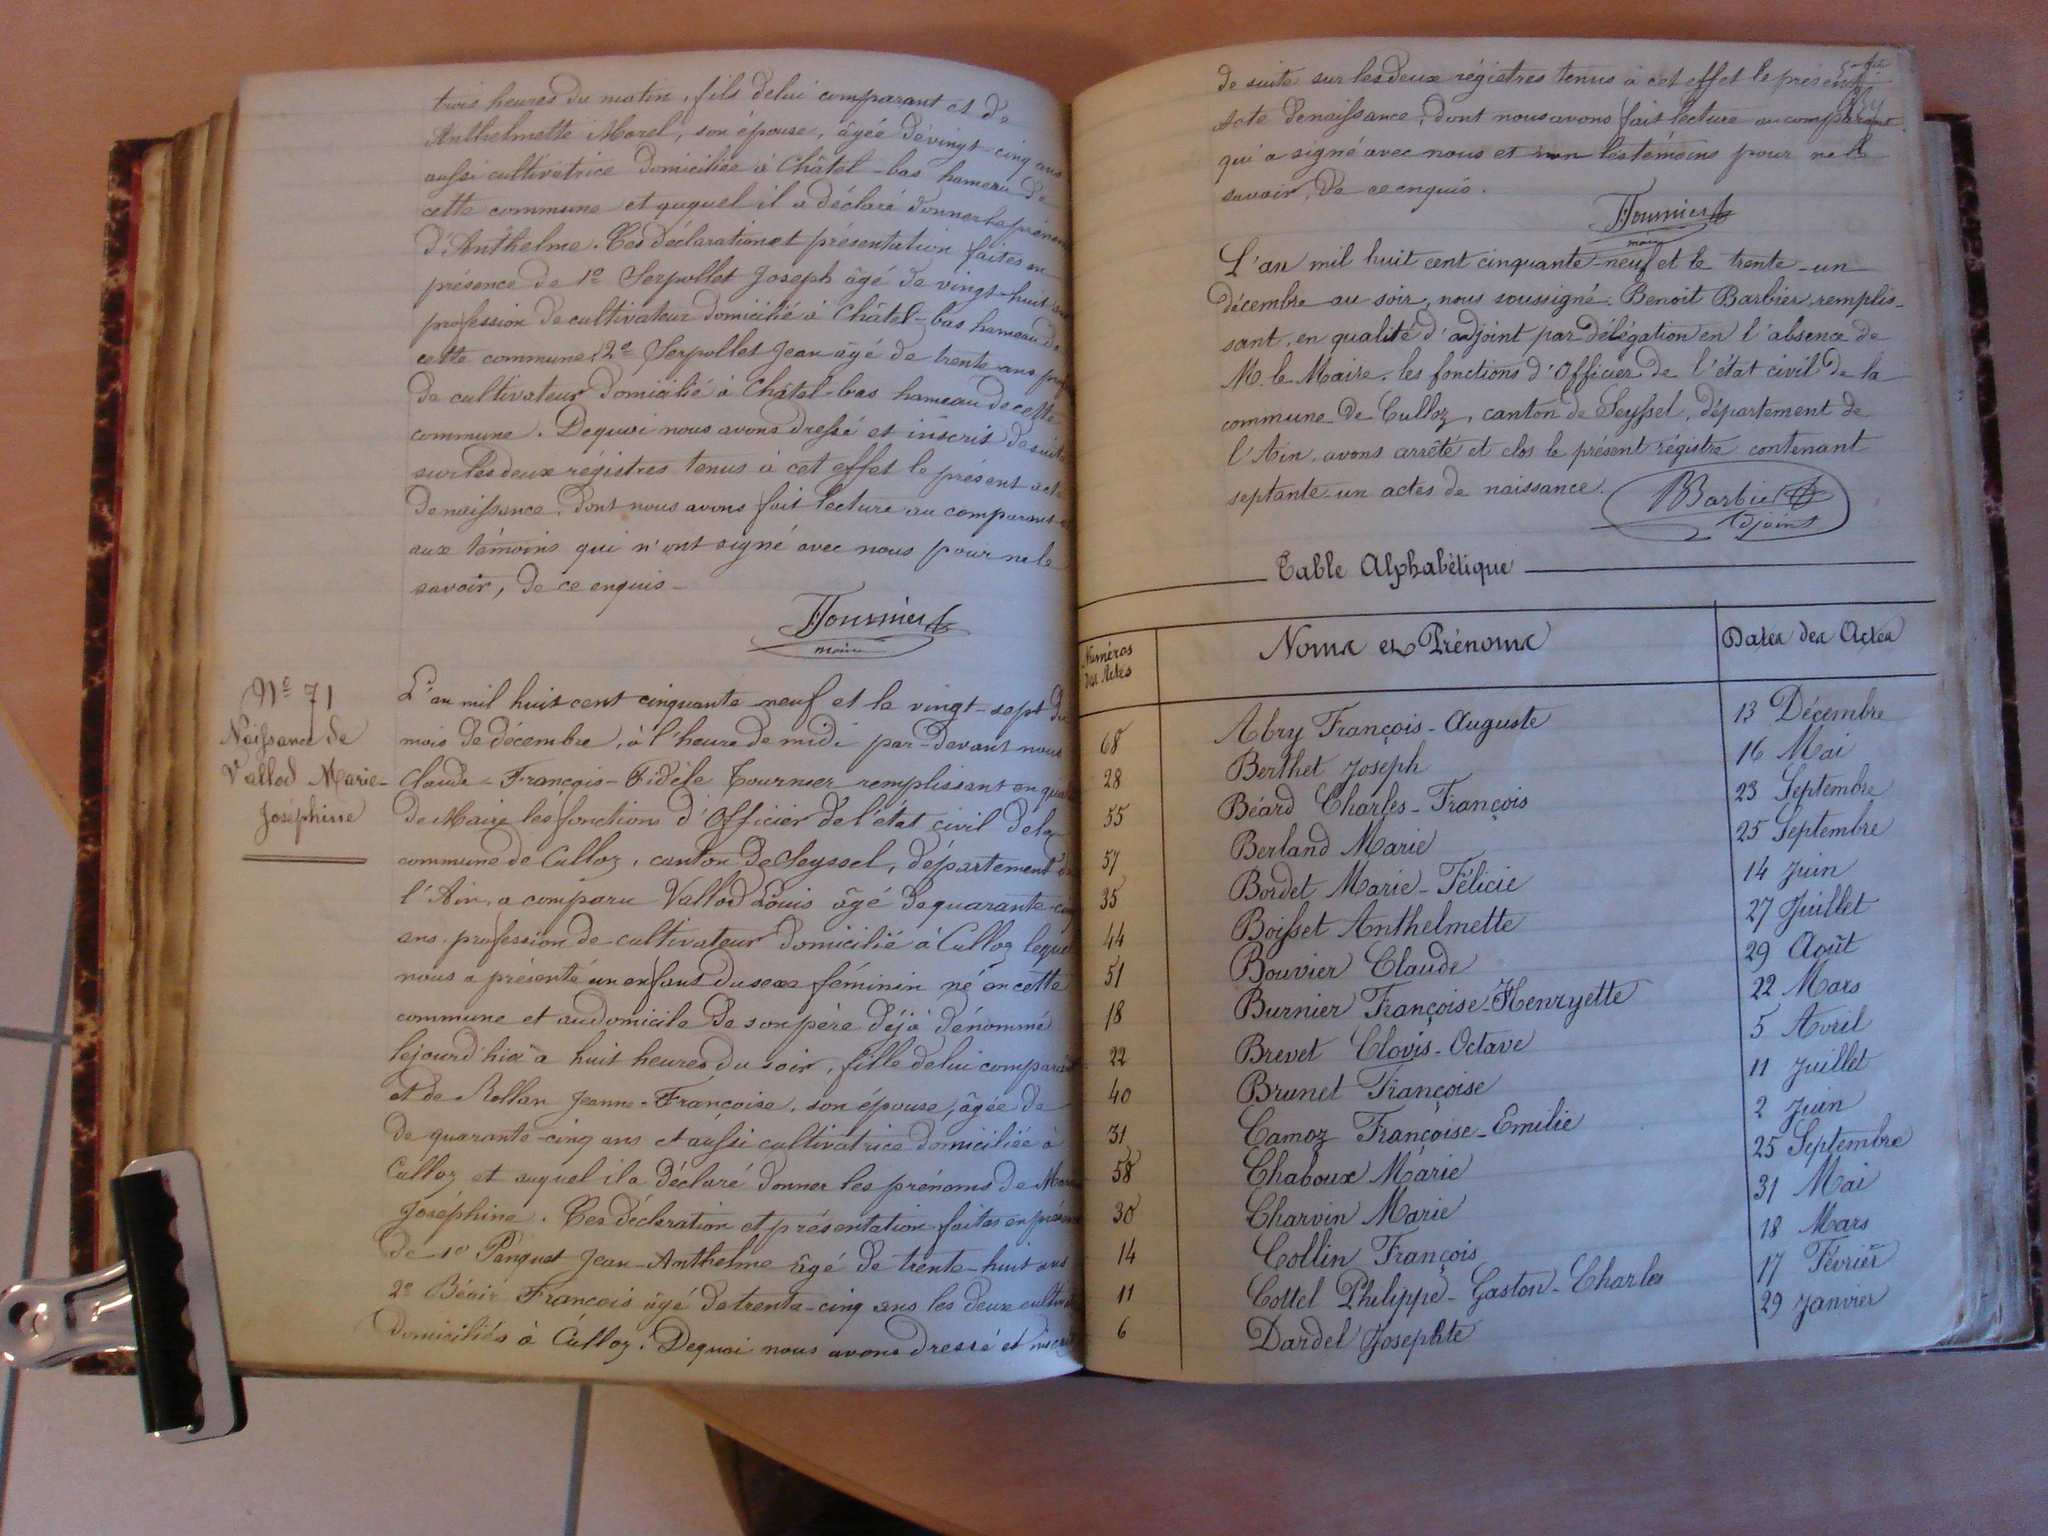 trois heures du matin, fils de lui comparant et de
Anthelmette Morel, son épouse, âgée de vingt-cinq ans
aussi cultivatrice domiciliée à Châtel-bas hameau de
cette commune et auquel il a déclaré donner le prénom
d'Anthelme. Ces déclaration et présentation faites en
présence de 1º Serpollet Joseph âgé de vingt-huit ans
profession de cultivateur domicilié à Châtel-bas hameau de
cette commune, 2º Serpollet Jean âgé de trente ans prof
de cultivateur domicilié à Châtel-bas hameau de cette
commune. De quoi nous avons dressé et inscrit de suite
sur les deux régistres tenus à cet effet le présent acte
de naissance, dont nous avons fait lecture au comparant et
aux témoins qui n'ont signé avec nous pour ne le
savoir, de ce enquis.
Tournier
maire
Nº 71
Naissance de
Vallod Marie-
Joséphine
L'an mil huit cent cinquante neuf et le vingt-sept du
mois de décembre, à l'heure de midi par-devant nous
Claude-François-Fidèle Tournier remplissant en qual
de Maire les fonctions d'Officier de l'état civil de la
commune de Culloz, canton de Seyssel, département de
l'Ain, a comparu Vallod Louis âgé de quarante-cinq
ans, profession de cultivateur domicilié à Culloz lequel
nous a présenté un enfant du sexe féminin né en cette
commune et au domicile de son père déjà dénommé
le jourd'hier à huit heures du soir, fille de lui comparant
et de Rollan Jeanne-Françoise, son épouse, âgée de
de quarante-cinq ans et aussi cultivatrice domiciliée à
Culloz et auquel il a déclaré donner les prénoms de Marie
Joséphine. Ces déclaration et présentation faites en présence
de 1º Panquet Jean-Anthelme âgé de trente-huit ans
2º Béair François âgé de trente-cinq ans les deux cultiv
domiciliés à Culloz. De quoi nous avons dressé et inscrit
de suite sur les deux régistres tenus à cet effet le présent
Acte de naissance, dont nous avons fait lecture au comparant
qui a signé avec nous et non les témoins pour ne le
savoir, de ce enquis.
Tournier
maire
L'an mil huit cent cinquante-neuf et le trente-un
décembre au soir, nous soussigné Benoit Barbier, remplis-
sant, en qualité d'adjoint par délégation en l'absence de
M. le Maire, les fonctions d'Officier de l'état civil de la
commune de Culloz, canton de Seyssel, département de
l'Ain, avons arrêté et clos le présent régistre contenant
septante-un actes de naissance.
BBarbier
Adjoint
Table Alphabétique
Numéros des Actes Noms et Prénoms Dates des Actes
68 Abry François-Auguste 13 Décembre
28 Berthet Joseph 16 Mai
55 Béard Charles-François 23 Septembre
57 Berland Marie 25 Septembre
35 Bordet Marie-Félicie 14 Juin
44 Boisset Anthelmette 27 Juillet
51 Bouvier Claude 29 Août
18 Burnier Françoise-Henryette 22 Mars
22 Brevet Clovis-Octave 5 Avril
40 Brunet Françoise 11 Juillet
31 Camoz Françoise-Emilie 2 Juin
58 Chaboux Marie 25 Septembre
30 Charvin Marie 31 Mai
14 Collin François 18 Mars
11 Cottel Philippe-Gaston-Charles 17 Février
6 Dardel Josephte 29 Janvier